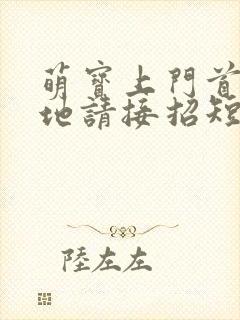 萌寶上門首
地請接招短
陸左左